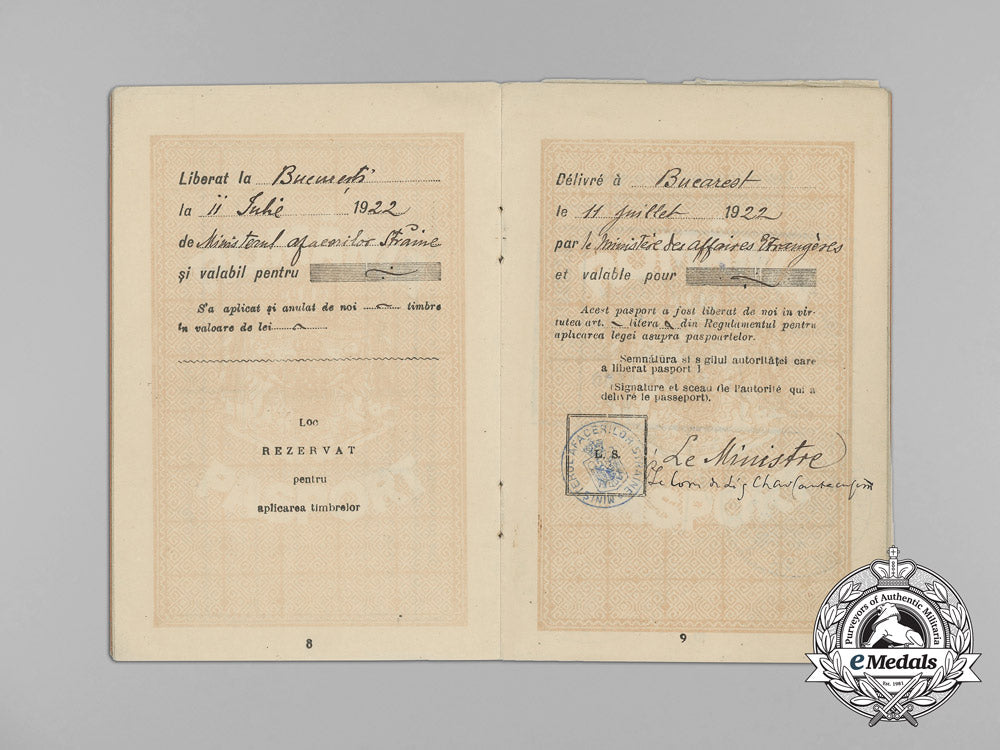 Liberat la București
la 11 Iulie 1922
de Ministerul afacerilor Străine
și valabil pentru
S'a aplicat și anulat de noi timbre
în valoare de lei
Loc
REZERVAT
pentru
aplicarea timbrelor
8
Délivré à Bucarest
le 11 juillet 1922
par le Ministère des affaires Etrangères
et valable pour
Acest pasport a fost liberat de noi în vir-
tutea art. litera a din Regulamentul pentru
aplicarea legei asupra paspoartelor.
Semnătura si sigilul autorităței care
a liberat pasport l
(Signature et sceau de l'autorité qui a
délivré le passeport).
MINISTERUL AFACERILOR STRAINE
L. S.
Le Ministre
9
Purveyors of Authentic Militaria
eMedals
Est. 1981